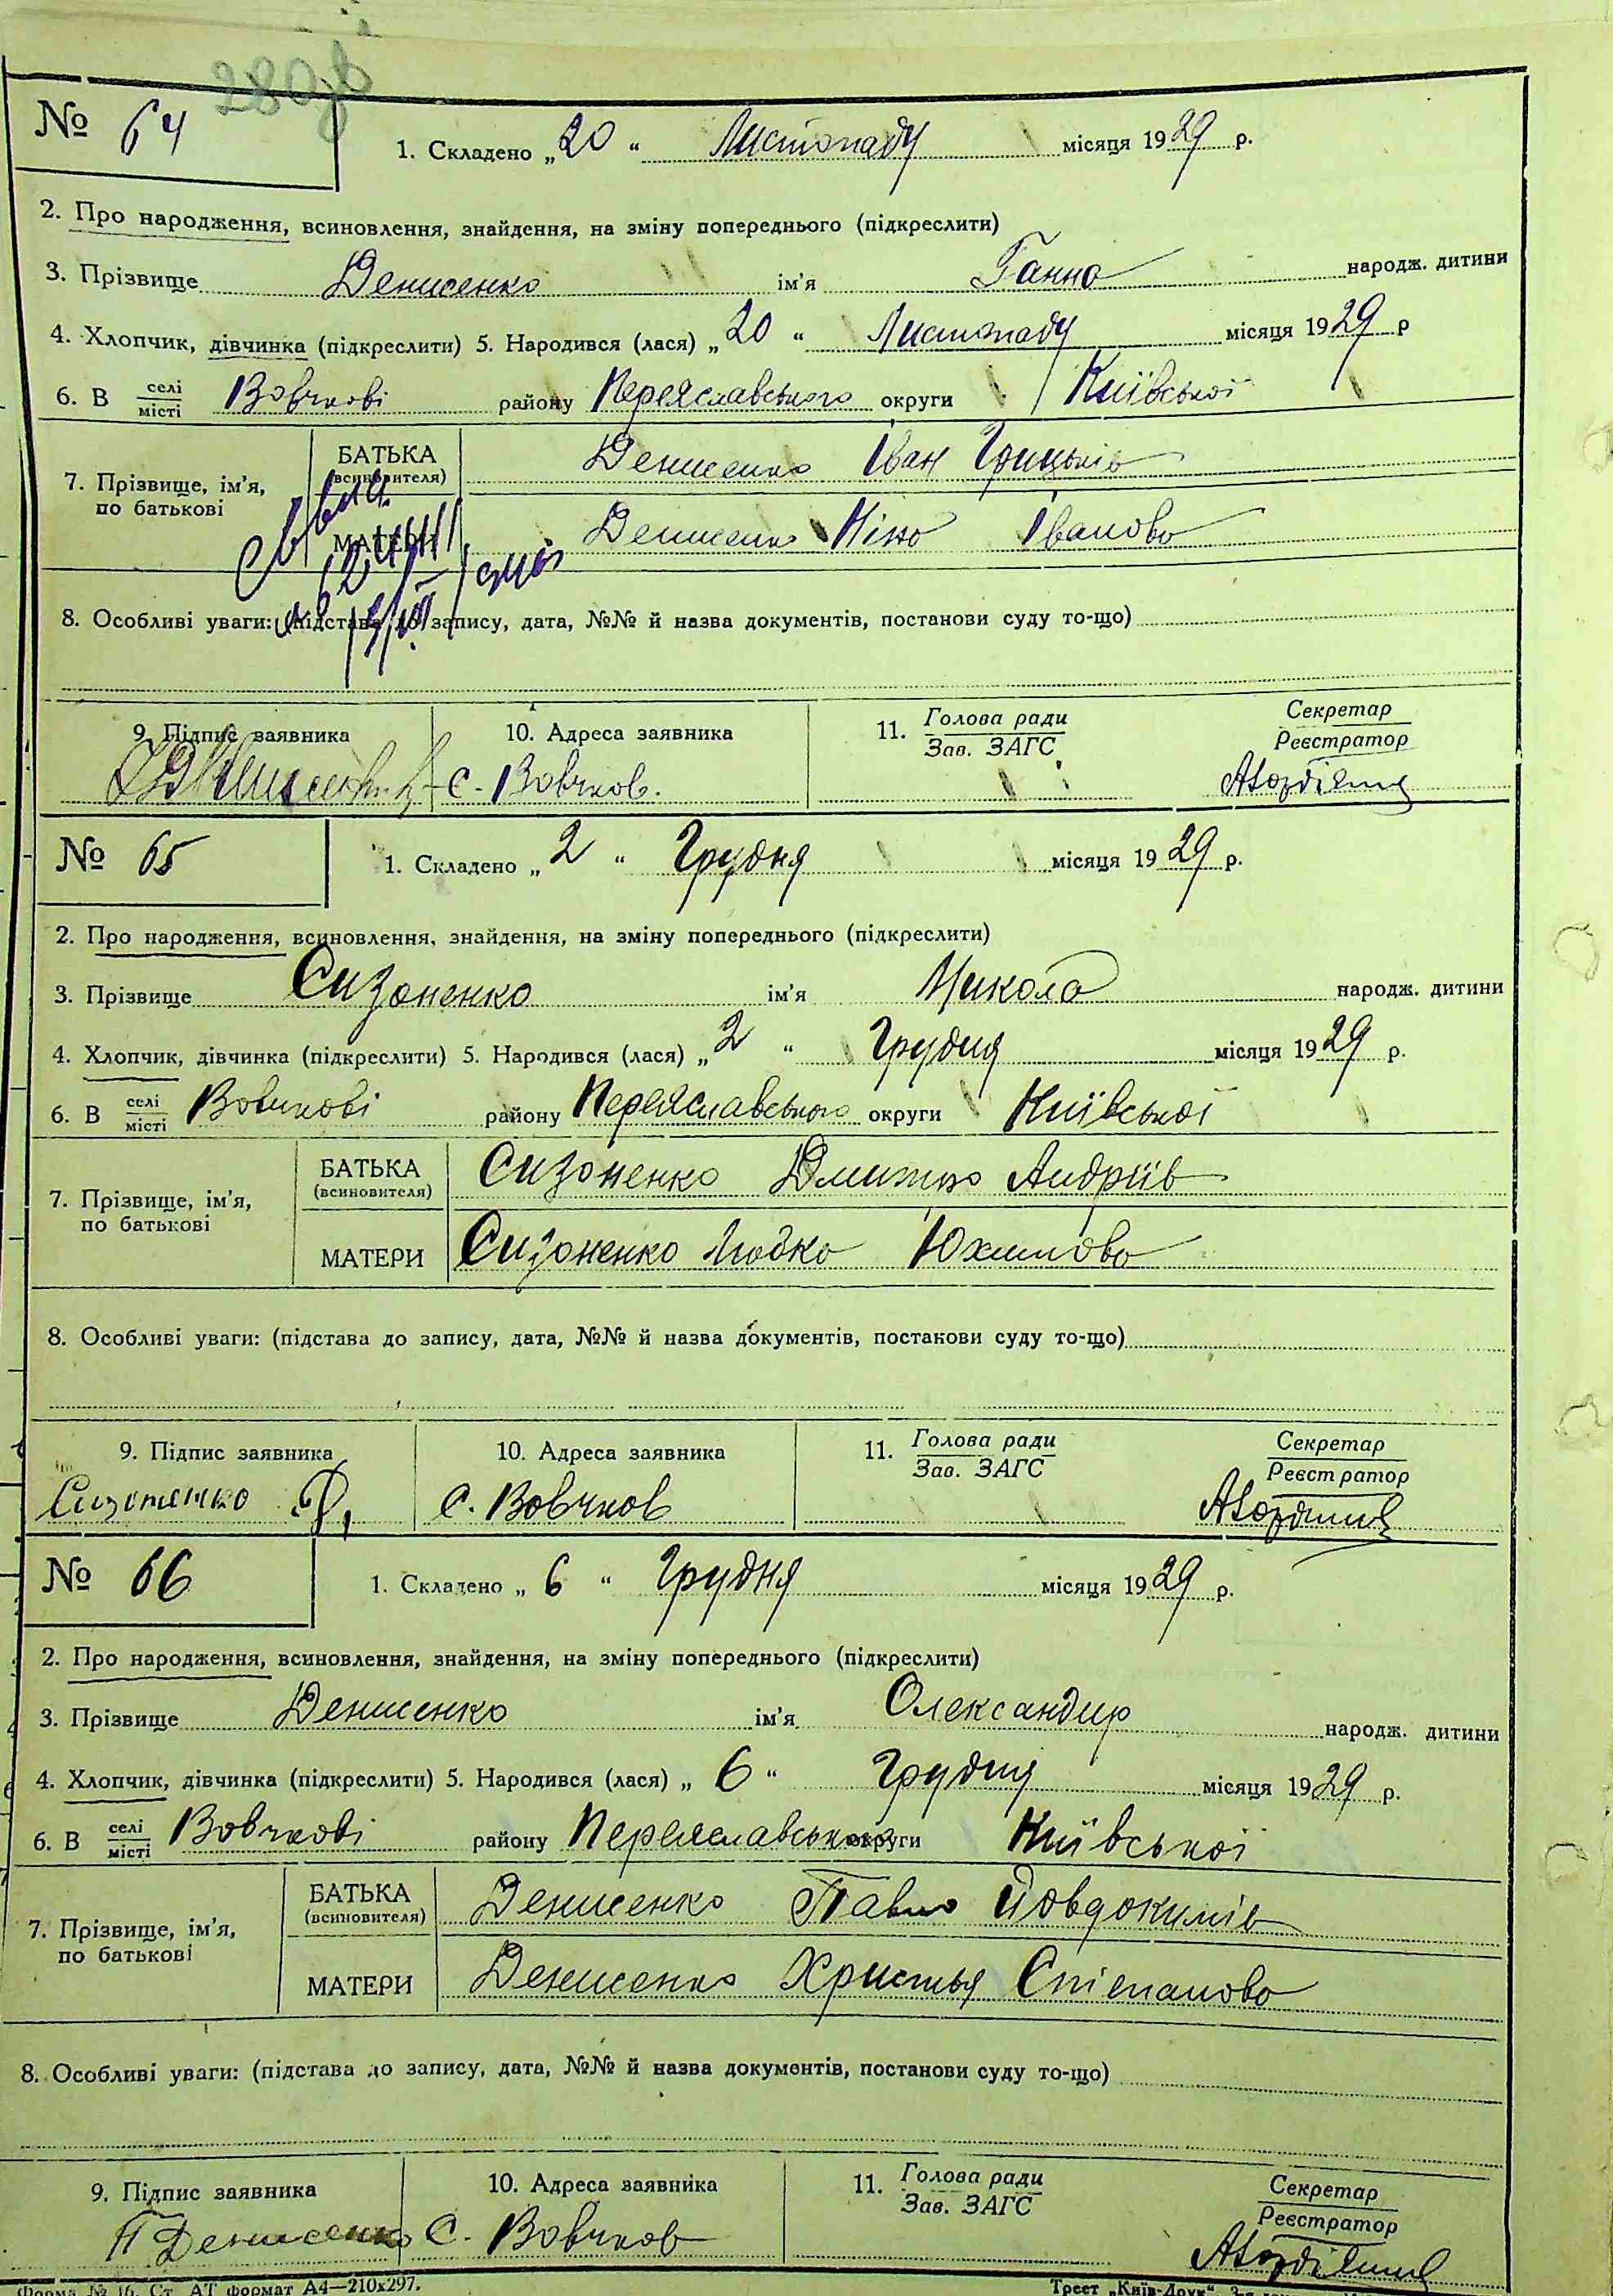 280
№ 64
1. Складено „20“ Листопаду місяця 1929 р.
2. Про народження, всиновлення, знайдення, на зміну попереднього (підкреслити)
3. Прізвище Денисенко ім'я Ганна народж. дитини
4. Хлопчик, дівчинка (підкреслити) 5. Народився (лася) „20“ Листопаду місяця 1929 р
6. В селі/місті Вовчкові району Переяславського округи Київської
7. Прізвище, ім'я, по батькові
БАТЬКА (всиновителя) Денисенко Іван Грицьків
МАТЕРИ Денисенко Ніна Іванова
8. Особливі уваги: (підстава до запису, дата, №№ й назва документів, постанови суду то-що)
9. Підпис заявника
10. Адреса заявника
11. Голова ради
Зав. ЗАГС
Секретар
Реєстратор
с. Вовчков.
№ 65
1. Складено „2“ Грудня місяця 1929 р.
2. Про народження, всиновлення, знайдення, на зміну попереднього (підкреслити)
3. Прізвище Сизоненко ім'я Микола народж. дитини
4. Хлопчик, дівчинка (підкреслити) 5. Народився (лася) „2“ Грудня місяця 1929 р.
6. В селі/місті Вовчкові району Переяславського округи Київської
7. Прізвище, ім'я, по батькові
БАТЬКА (всиновителя) Сизоненко Дмитро Андріїв
МАТЕРИ Сизоненко Любка Юхимова
8. Особливі уваги: (підстава до запису, дата, №№ й назва документів, постанови суду то-що)
9. Підпис заявника
10. Адреса заявника
11. Голова ради
Зав. ЗАГС
Секретар
Реєстратор
Сизоненко Д,
с. Вовчков
№ 66
1. Складено „6“ Грудня місяця 1929 р.
2. Про народження, всиновлення, знайдення, на зміну попереднього (підкреслити)
3. Прізвище Денисенко ім'я Олександир народж. дитини
4. Хлопчик, дівчинка (підкреслити) 5. Народився (лася) „6“ Грудня місяця 1929 р.
6. В селі/місті Вовчкові району Переяславського округи Київської
7. Прізвище, ім'я, по батькові
БАТЬКА (всиновителя) Денисенко Павло Йовдокимів
МАТЕРИ Денисенко Христья Степанова
8. Особливі уваги: (підстава до запису, дата, №№ й назва документів, постанови суду то-що)
9. Підпис заявника
10. Адреса заявника
11. Голова ради
Зав. ЗАГС
Секретар
Реєстратор
П Денисенко
С. Вовчков
Форма № 16. Ст. АТ формат А4—210х297.
Трест „Київ-Друк“